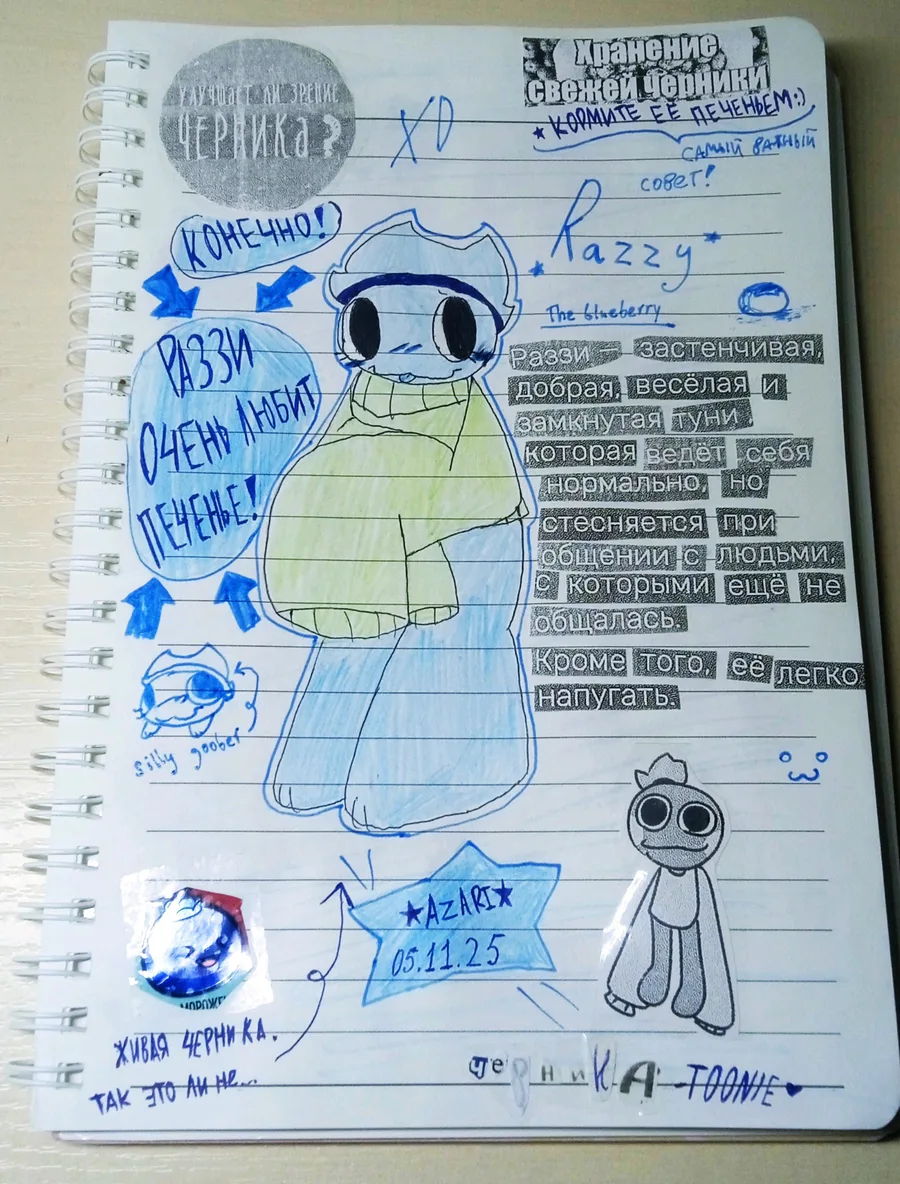 УЛУЧШАЕТ ЛИ ЗРЕНИЕ
ЧЕРНИКА?
XD
Хранение
свежей черники
★ КОРМИТЕ ЕЁ ПЕЧЕНЬЕМ:)
САМЫЙ ВАЖНЫЙ
СОВЕТ!
КОНЕЧНО!
Razzy
The blueberry
РАЗЗИ
ОЧЕНЬ ЛЮБИТ
ПЕЧЕНЬЕ!
Раззи – застенчивая,
добрая, весёлая и
замкнутая туни
которая ведёт себя
нормально, но
стесняется при
общении с людьми,
с которыми ещё не
общалась.
Кроме того, её легко
напугать.
silly goober
★AZARI★
05.11.25
МОРОЖЕ
ЖИВАЯ ЧЕРНИКА.
ТАК ЭТО ЛИ НЕ...
черниКА -TOONIE ♥